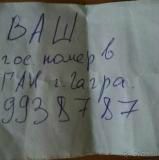 ВАШ
гос. номер в
ГАИ г. Гагра.
9938787